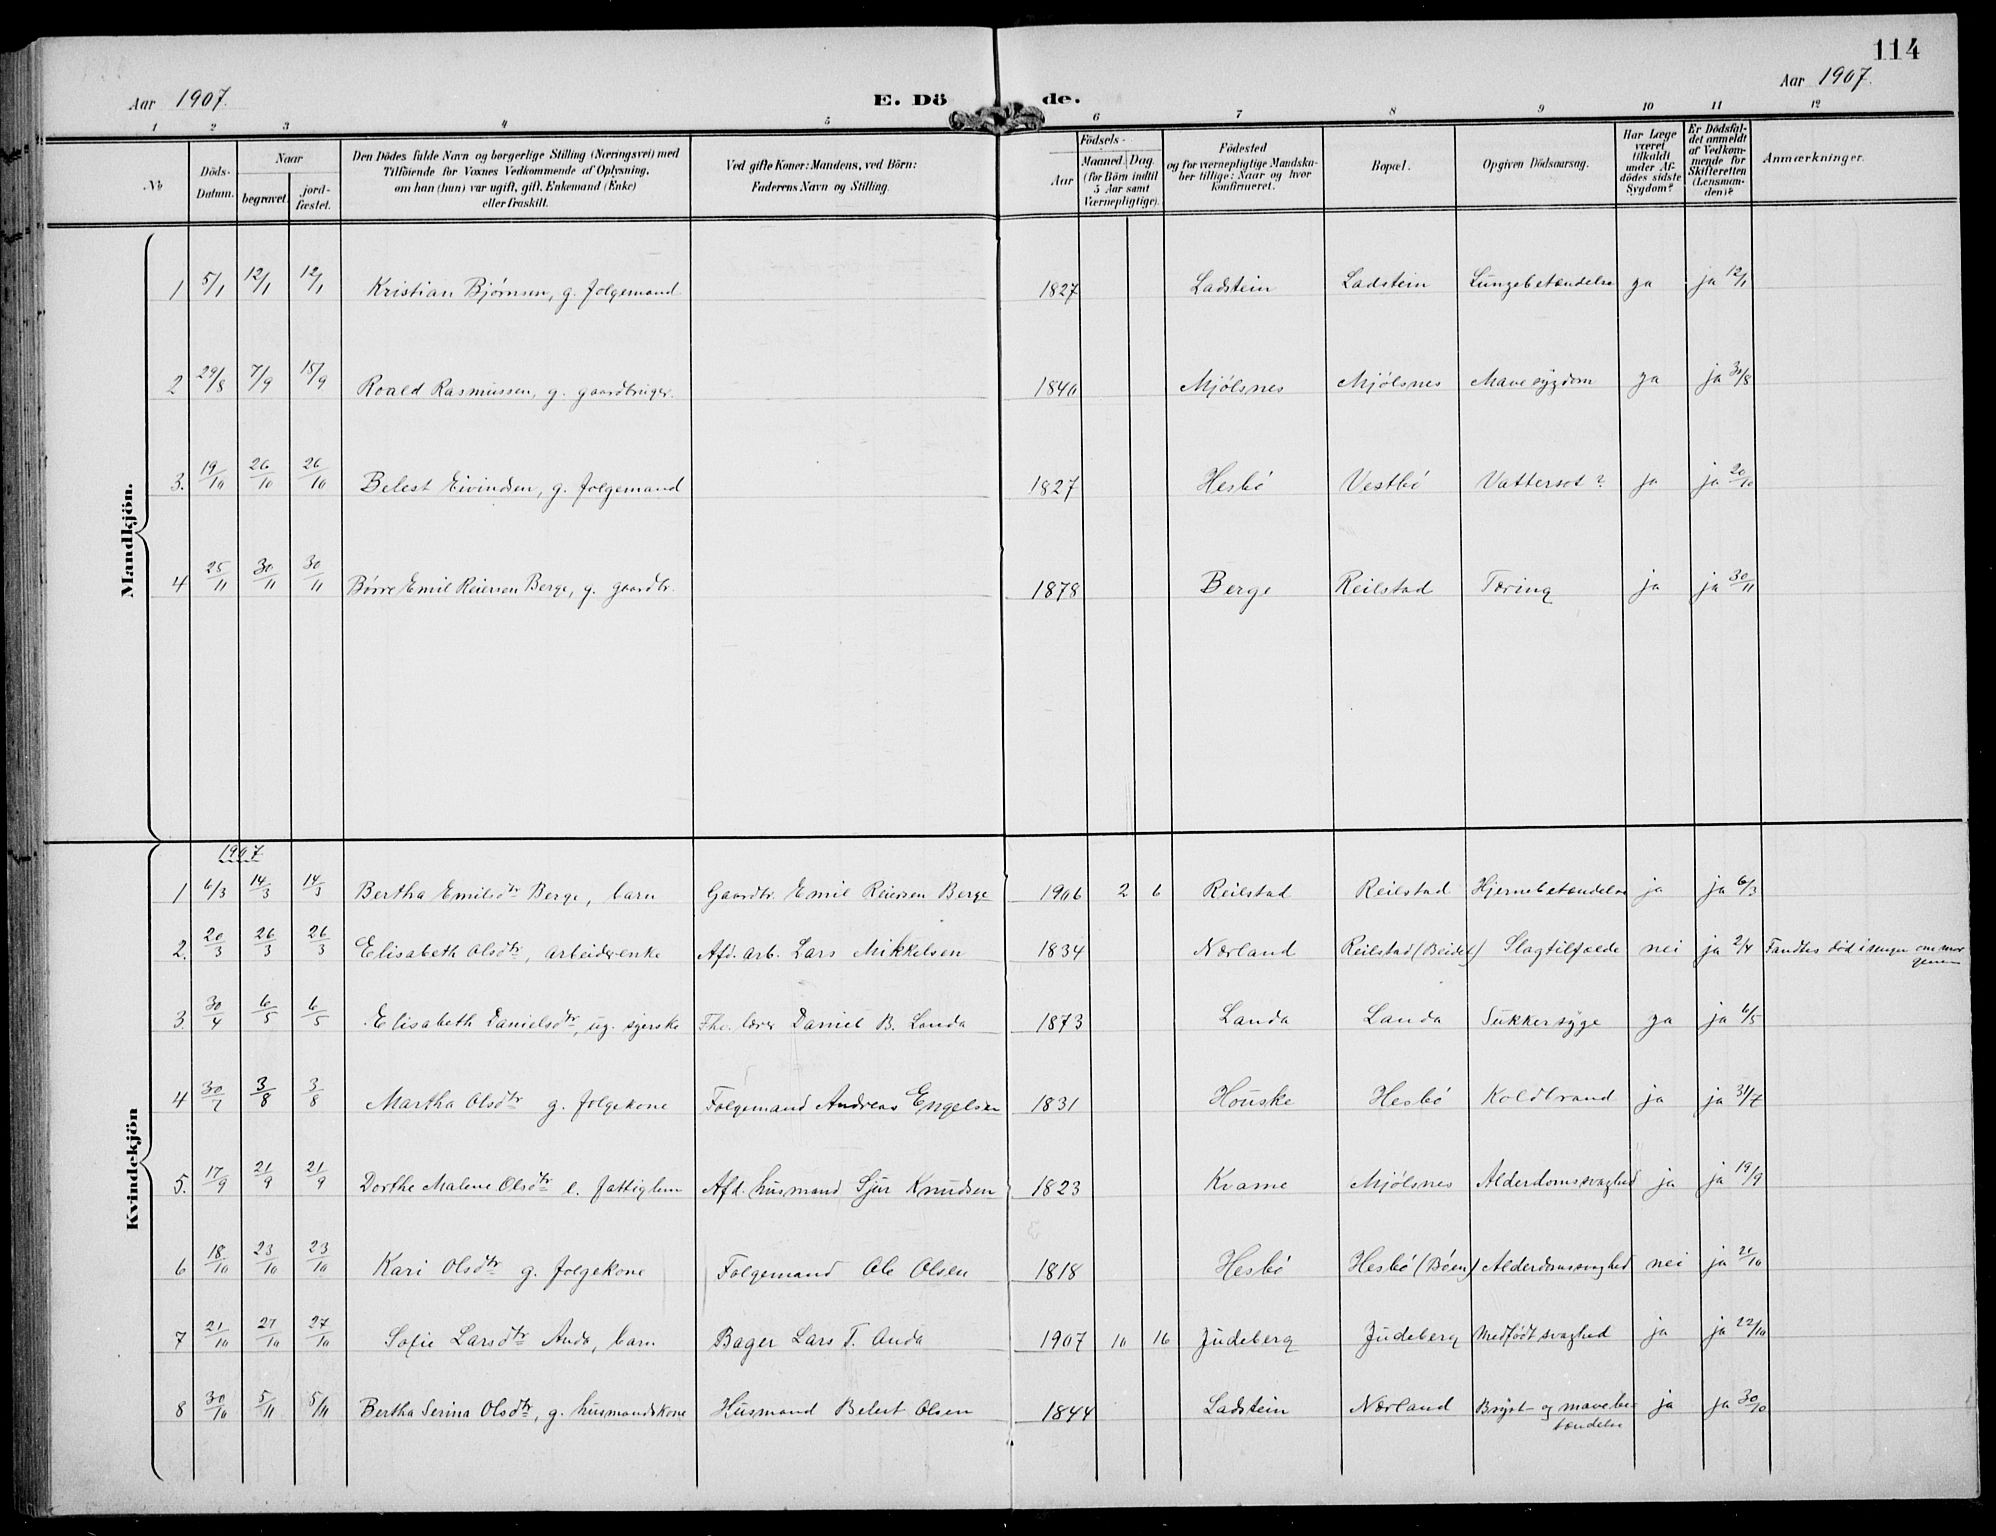 114
Aar 1907.
E. Dö de.
Aar 1907.
1 2 3 4 5 6 7 8 9 10 11 12
No
Döds-Datum.
Naar
begravet.
jord-fæstet.
Den Dödes fulde Navn og borgerlige Stilling (Næringsvei) med
Tilföiende for Voxnes Vedkommende af Oplysning,
om han (hun) var ugift, gift, Enkemand (Enke)
eller fraskilt.
Ved gifte Koner: Mandens, ved Börn:
Faderens Navn og Stilling.
Födsels-
Aar
Maaned. Dag.
(for Börn indtil
5 Aar samt
Værnepligtige).
Födested
og for værnepligtige Mandska-
ber tillige: Naar og hvor
konfirmeret.
Bopæl.
Opgiven Dödsaarsag.
Har Læge
været
tilkaldt
under Af-
dödes sidste
Sygdom?
Er Dödsfal-
det anmeldt
af Vedkom-
mende for
Skifteretten
(Lensman-
den)?
Anmærkninger.
Mandkjön.
1 5/1 12/1 12/1 Kristian Bjørnsen, g. folgemand 1827 Ladstein Ladstein Lungebetændelse ja ja 12/1
2 29/8 7/9 15/9 Roald Rasmussen, g. gaardbruger. 1840 Mjølsnes Mjølsnes Mavesygdom ja ja 30/8
3. 19/10 26/10 26/10 Belest Eivindsen, g. folgemand 1827 Hesbø Vestbø Vattersot? ja ja 20/10
4 25/11 30/11 30/11 Børre Emil Reiersen Berge, g. gaardbr. 1878 Berge Reilstad Tæring ja ja 30/11
Kvindekjön
1907
1 6/3 14/3 14/3 Bertha Emilsdtr Berge, barn Gaardbr. Emil Reiersen Berge 1906 2 6 Reilstad Reilstad Hjernebetændelse ja ja 6/3
2. 20/3 26/3 26/3 Elisabeth Olsdtr, arbeiderenke Afd. arb. Lars Mikkelsen 1834 Nærland Reilstad (Beidel) Slagtilfælde nei ja 2/4 Fandtes død i sengen om mor
genen
3. 30/4 6/5 6/5 Elisabeth Danielsdtr, ug. syerske Fhv. lærer Daniel B. Landa 1873 Landa Landa Sukkersyge ja ja 6/5
4 30/7 3/8 3/8 Martha Olsdtr g. folgekone Folgemand Andreas Engelsen 1831 Houske Hesbø Koldbrand ja ja 31/7
5. 17/9 21/9 21/9 Dorthe Malene Olsdtr e. fattiglem Afd. husmand Sjur Knudsen 1823 Kvame Mjølsnes Alderdomssvaghed ja ja 19/9
6 18/10 23/10 23/10 Kari Olsdtr g. folgekone Folgemand Ole Olsen 1818 Hesbø Hesbø (Bøen) Alderdomssvaghed nei ja 21/10
7 21/10 27/10 27/10 Sofie Larsdtr Anda, barn Bager Lars T. Anda 1907 10 16 Judeberg Judeberg Medfødt svaghed ja ja 22/10
8 30/10 5/11 5/11 Bertha Serina Olsdtr, g. husmandskone Husmand Belest Olsen 1844 Ladstein Nærland Bryst- og mavebe-
tændelse ja ja 30/10